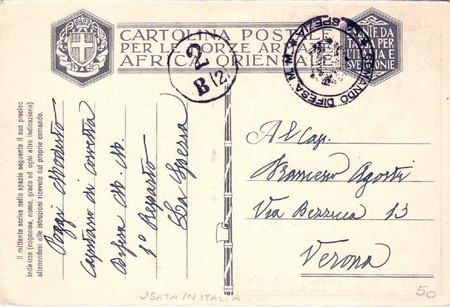 CARTOLINA POSTALE
PER LE FORZE ARMATE
AFRICA ORIENTALE
2
B (2)
COMANDO DIFESA M. M. SPEZIA
Il mittente scriva nello spazio seguente il suo preciso
indirizzo (cognome, nome, grado ed ogni altra indicazione)
attenendosi alle istruzioni ricevute dal proprio comando.
Poggi Modesto
Capitano di corvetta
Difesa M. M.
1° Reparto
Spezia
Al Cap.
Francesco Agosti
Via Bezzecca 13
Verona
USATA IN ITALIA
50